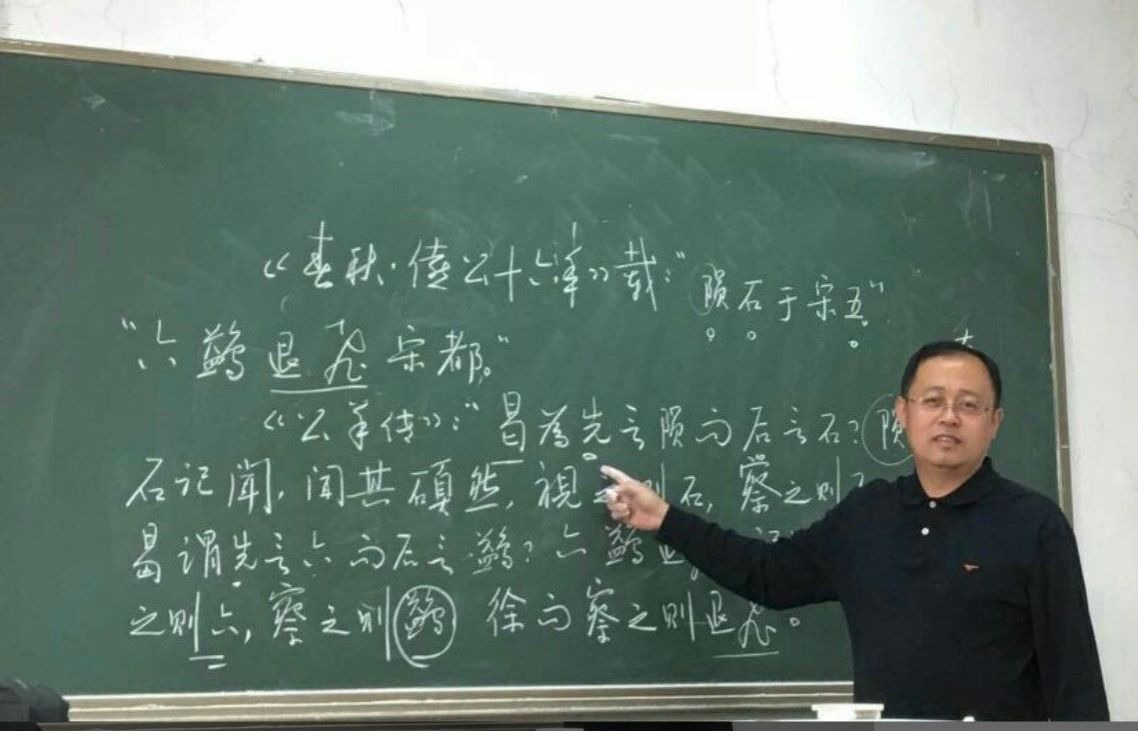 《春秋·僖公十六年》载:"陨石于宋五"
"六鹢退飞宋都。"
《公羊传》:"曷為先言陨而后言石?陨
石记闻,闻其磌然,視之则石,察之则
曷谓先言六而后言鹢?六鹢退
之则六,察之则鹢徐而察之则退飞。